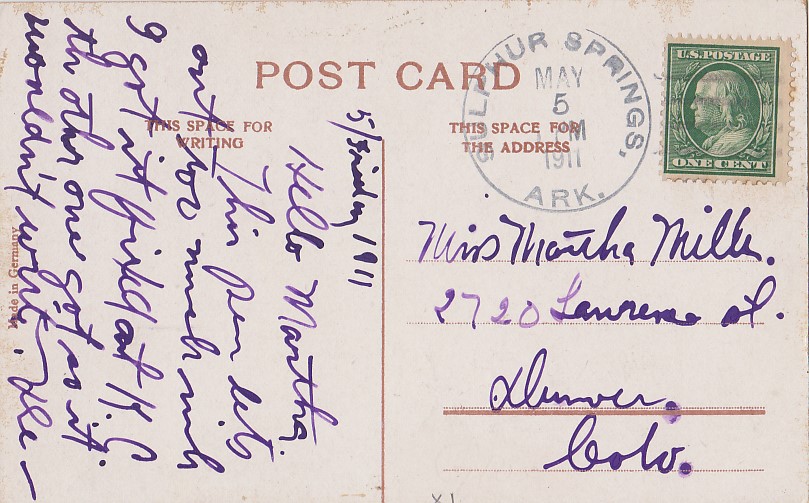 POST CARD
THIS SPACE FOR
WRITING
THIS SPACE FOR
THE ADDRESS
SULPHUR SPRINGS,
MAY
5
M
1911
ARK.
U.S. POSTAGE
ONE CENT
5/Friday 1911
Hello Martha.
This Pen lets
out too much ink
I got it fixed at K.C
th other one got so it
wouldn't write.
Miss Martha Miller.
2720 Lawrence st.
Denver.
Colo.
Made in Germany